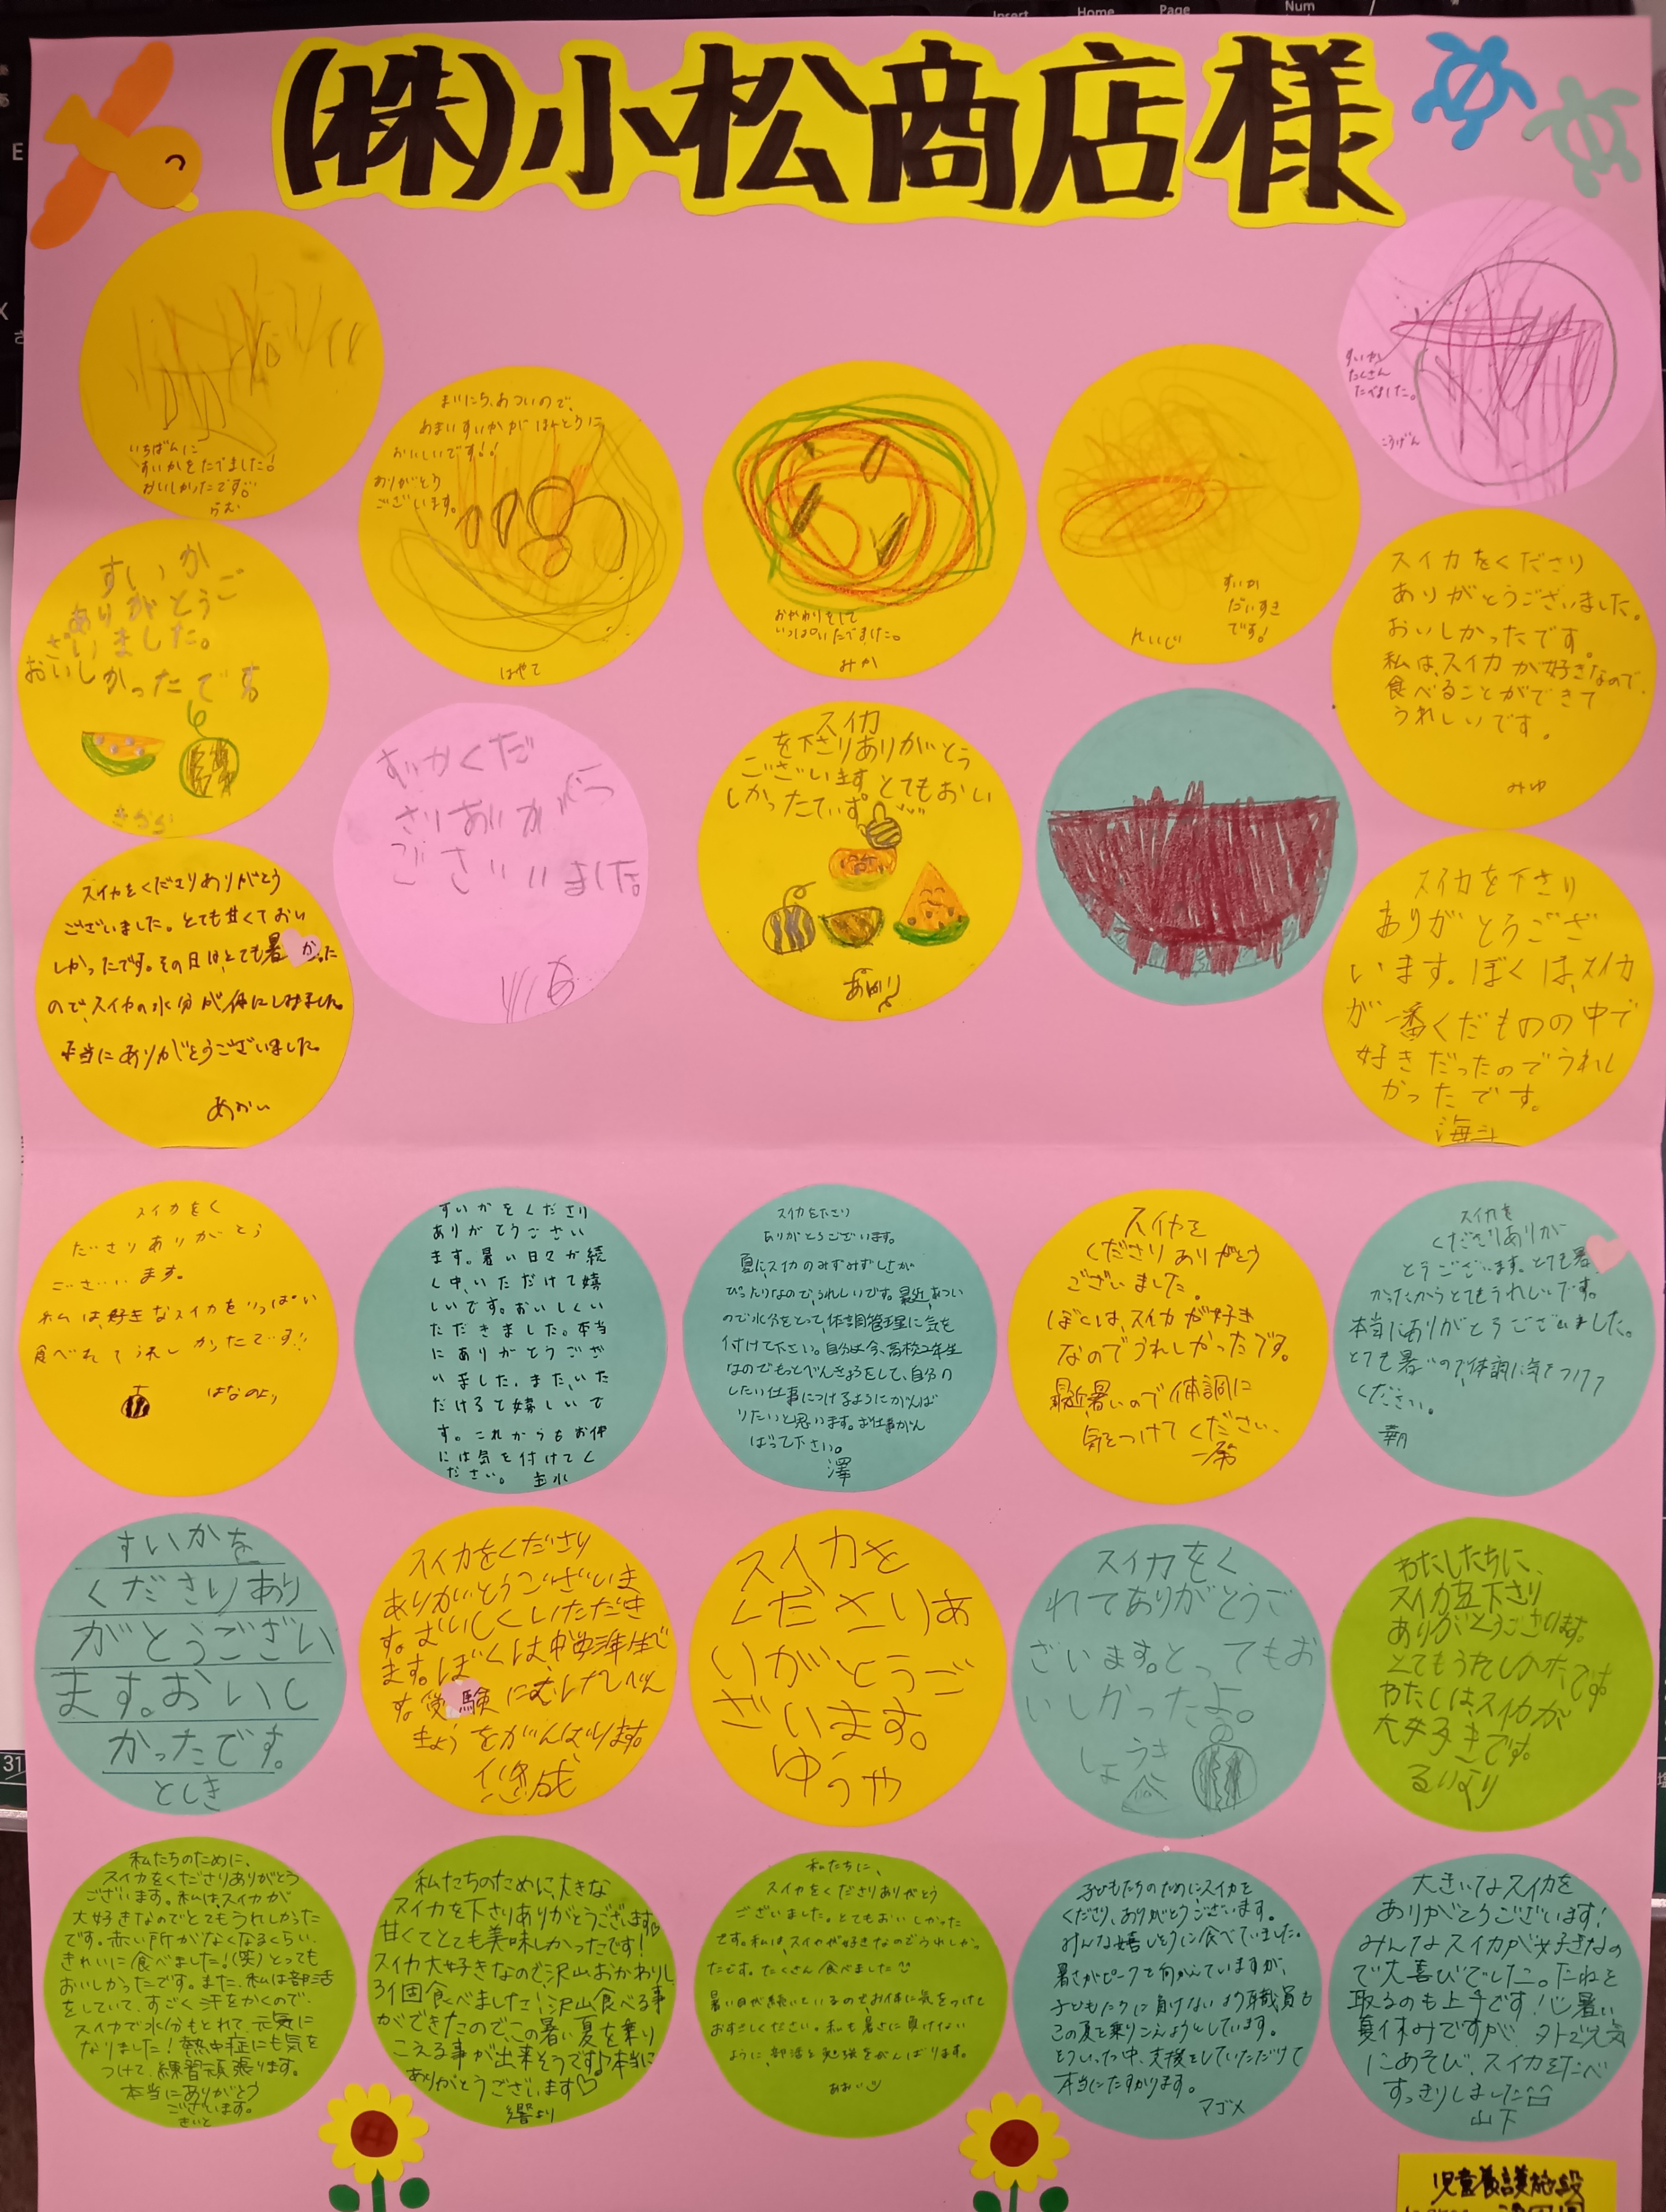 (株)小松商店様
いちばんに
すいかをたべました!
おいしかったです。
らむ
まいにち、あついので、
あまいすいかが ほんとうに
おいしいです!!
ありがとう
ございます。
はやて
おかわりをして
いっぱいたべました。
みか
すいか
だいすき
です!
れいじ
すいか
たくさん
たべました。
こうげん
すいか
ありがとうご
ざいました。
おいしかったです
すいかくだ
さりありがとう
ございいました
スイカ
を下さりありがとう
ございますとてもおい
しかったでいす
あかり
スイカをくださり
ありがとうございました。
おいしかったです。
私は、スイカが好きなので、
食べることができて
うれしいです。
みゆ
スイカをくださりありがとう
ございました。とても甘くておい
しかったです。その日は、とても暑かった
ので、スイカの水分が体にしみました。
本当にありがとうございました。
あおい
スイカを下さり
ありがとうござ
います。ぼくは、スイカ
が一番くだものの中で
好きだったのでうれし
かったです。
海斗
スイカをく
ださりありがとう
ございます。
私は、好きなスイカをいっぱい
食べれてうれしかったです!!
はなのより
すいかをくださり
ありがとうござい
ます。暑い日々が続
く中、いただけて嬉
しいです。おいしくい
ただきました。本当
にありがとうござ
いました。また、いた
だけると嬉しいで
す。これからもお体
には気を付けてく
ださい。
スイカを下さり
ありがとうございます。
夏に、スイカのみずみずしさが
ぴったりなので、うれしいです。最近、あつい
ので水分をとって、体調管理に気を
付けて下さい。自分は今、高校2年生
なのでもっとべんきょうをして、自分の
したい仕事につけるようにがんば
りたいと思います。お仕事がん
ばって下さい。
澤
スイカを
くださりありがとう
ございました。
ぼくは、スイカが好き
なのでうれしかったです。
最近、暑いので体調に
気をつけてください。
スイカを
くださりありが
とうございます。とても暑
かったからとてもうれしいです。
本当にありがとうございました。
とても暑いので、体調に気をつけて
ください。
すいかを
くださりあり
がとうござい
ます。おいし
かったです。
としき
スイカをくださり
ありがとうございま
す。おいしくいただき
ます。ぼくは、中学3年生で
す。受験にむけてべん
きょうをがんばります。
悠成
スイカを
くださりあ
りがとうご
ざいます。
ゆうや
スイカをく
れてありがとうご
ざいます。とってもお
いしかったよ。
しょうき
わたしたちに、
スイカを下さり
ありがとうございます。
とてもうれしかったです
わたしは、スイカが
大好きです。
るいより
私たちのために、
スイカをくださりありがとう
ございます。私は、スイカが
大好きなのでとてもうれしかった
です。赤い所がなくなるくらい、
きれいに食べました!(笑)とっても
おいしかったです。また、私は部活
をしていて、すごく汗をかくので、
スイカで水分もとれて、元気に
なりました!熱中症にも気を
つけて、練習頑張ります。
本当にありがとう
ございます。
私たちのために、大きな
スイカを下さりありがとうございます♡
甘くてとても美味しかったです!
スイカ大好きなので、沢山おかわりし
3個食べました!沢山食べる事
ができたので、この暑い夏を乗り
こえる事が出来そうです♪本当に
ありがとうございます♡
響より
私たちに、
スイカをくださりありがとう
ございました。とてもおいしかった
です。私は、スイカが好きなのでうれしかっ
たです。たくさん食べました
暑い日が続いているのでお体に気をつけて
おすごしください。私も暑さに負けない
ように、部活と勉強をがんばります。
あおい
子どもたちのためにスイカを
くださり、ありがとうございます。
みんな嬉しそうに食べていました。
暑さがピークを向かえていますが、
子どもたちに負けないよう職員も
この夏を乗りこえようとしています。
そういった中、支援をしていただけて
本当にたすかります。
マゴメ
大きいなスイカを
ありがとうございます!
みんなスイカが好きなの
で大喜びでした。たねを
取るのも上手です!暑い
夏休みですが、外で元気
にあそび、スイカを食べ
すっきりしました
山下
児童養護施設